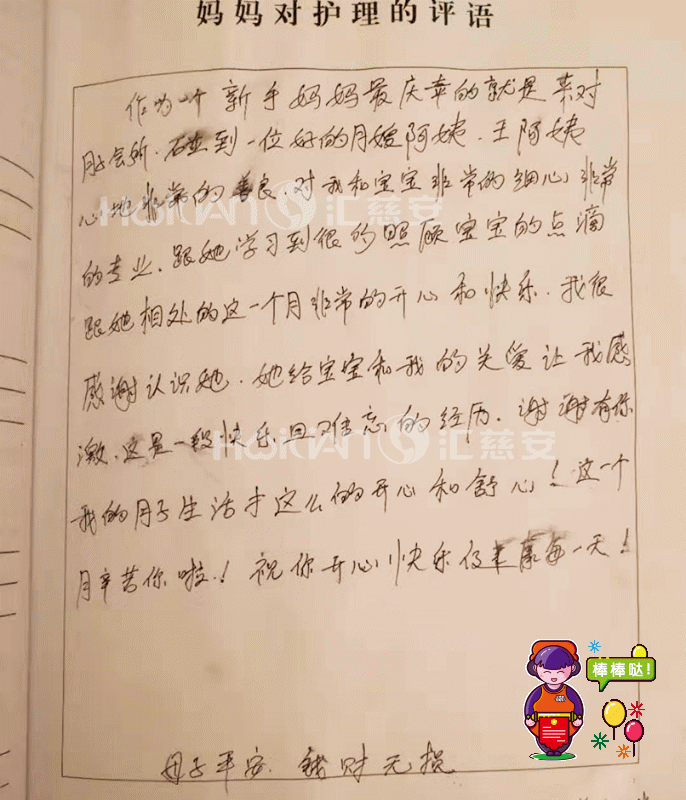 妈妈对护理的评语
作为一个新手妈妈最庆幸的就是来对
月子会所.碰到一位好的月嫂阿姨.王阿姨
心地非常的善良.对我和宝宝非常的细心非常
HOKIAN 汇慈安
的专业.跟她学习到很多照顾宝宝的点滴
跟她相处的这一个月非常的开心和快乐.我很
感谢认识她.她给宝宝和我的关爱让我感
激.这是一段快乐且难忘的经历.谢谢有你
HOKIAN 汇慈安
我的月子生活才这么的开心和舒心!这一个
月辛苦你啦!祝你开心快乐健康每一天!
棒棒哒!
母子平安.钱财无损